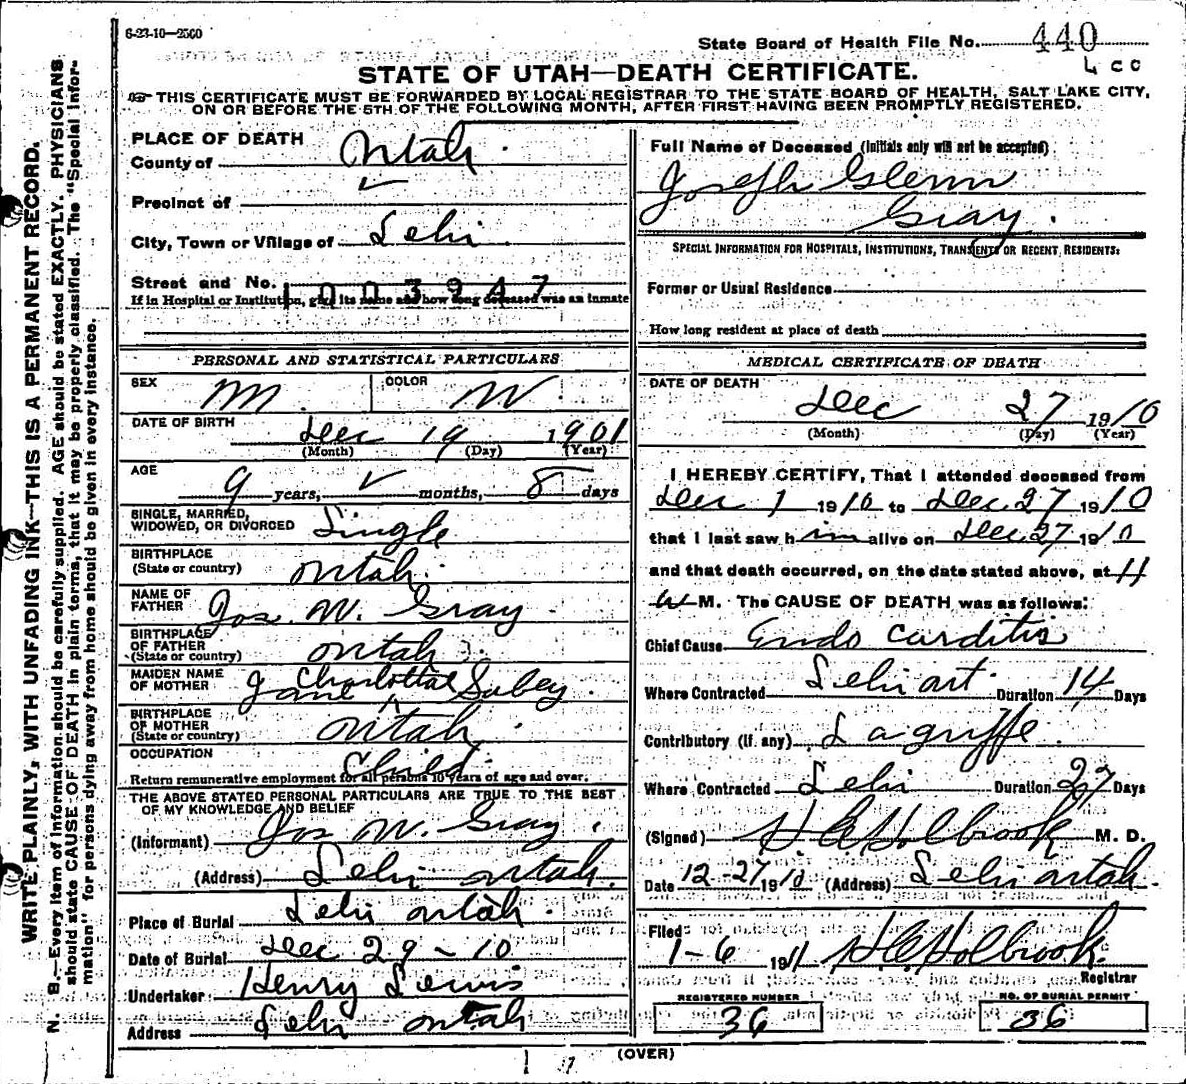 6-23-10—2500
State Board of Health File No. 440
L CC
STATE OF UTAH—DEATH CERTIFICATE.
THIS CERTIFICATE MUST BE FORWARDED BY LOCAL REGISTRAR TO THE STATE BOARD OF HEALTH, SALT LAKE CITY,
ON OR BEFORE THE 5TH OF THE FOLLOWING MONTH, AFTER FIRST HAVING BEEN PROMPTLY REGISTERED.
WRITE PLAINLY, WITH UNFADING INK—THIS IS A PERMANENT RECORD.
N. B.—Every item of information should be carefully supplied. AGE should be stated EXACTLY. PHYSICIANS
should state CAUSE OF DEATH in plain terms, that it may be properly classified. The "Special Infor-
mation" for persons dying away from home should be given in every instance.
PLACE OF DEATH
County of Utah
Precinct of
City, Town or Village of Lehi
Street and No.
1003947
If in Hospital or Institution, give its name and how long deceased was an inmate
PERSONAL AND STATISTICAL PARTICULARS
SEX M. COLOR W
DATE OF BIRTH Dec 19 1901
(Month) (Day) (Year)
AGE 9 years, ✓ months, 8 days
SINGLE, MARRIED,
WIDOWED, OR DIVORCED Single
BIRTHPLACE
(State or country) Utah
NAME OF
FATHER Jos. W. Gray
BIRTHPLACE
OF FATHER
(State or country) Utah
MAIDEN NAME
OF MOTHER Jane Charlotta Sabey.
BIRTHPLACE
OF MOTHER
(State or country) Utah
OCCUPATION Child
Return remunerative employment for all persons 10 years of age and over.
THE ABOVE STATED PERSONAL PARTICULARS ARE TRUE TO THE BEST
OF MY KNOWLEDGE AND BELIEF
(Informant) Jos W. Gray
(Address) Lehi Utah.
Place of Burial Lehi Utah.
Date of Burial Dec 29 - 10
Undertaker Henry Lewis
Address Lehi Utah
Full Name of Deceased (Initials only will not be accepted)
Joseph Glenn
Gray.
SPECIAL INFORMATION FOR HOSPITALS, INSTITUTIONS, TRANSIENTS OR RECENT RESIDENTS:
Former or Usual Residence
How long resident at place of death
MEDICAL CERTIFICATE OF DEATH
DATE OF DEATH
Dec 27 1910
(Month) (Day) (Year)
I HEREBY CERTIFY, That I attended deceased from
Dec 1 1910 to Dec 27 1910
that I last saw him alive on Dec. 27 1910
and that death occurred, on the date stated above, at 11
M. The CAUSE OF DEATH was as follows:
Chief Cause Endo carditis
Where Contracted Lehi Duration 14 Days
Contributory (if any) Lagriffe
Where Contracted Lehi Duration 27 Days
(Signed) Holbrook M. D.
Date 12-27 1910 (Address) Lehi Utah.
Filed
1-6 1911 Holbrook.
Registrar
REGISTERED NUMBER
36
NO. OF BURIAL PERMIT
36
(OVER)